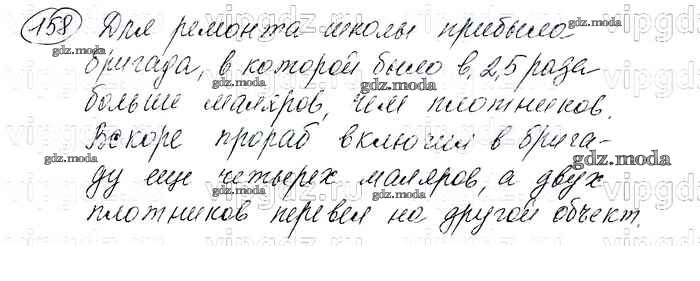 158 Для ремонта школы прибыла
бригада, в которой было в 2,5 раза
больше маляров, чем плотников.
Вскоре прораб включил в брига-
ду еще четырех маляров, а двух
плотников перевел на другой объект.
gdz.moda
gdz.moda
gdz.moda
gdz.moda
gdz.moda
gdz.moda
gdz.moda
gdz.moda
gdz.moda
gdz.moda